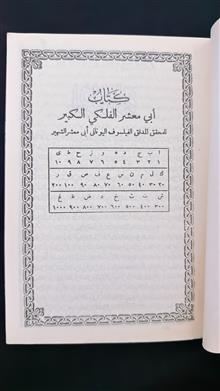 كتاب
أبي معشر الفلكي الكبير
للمحقق المدقق الفيلسوف اليوناني أبي معشر الشهير
ا ب ج د ه و ز ح ط ى
١ ٢ ٣ ٤ ٥ ٦ ٧ ٨ ٩ ١٠
ك ل م ن س ع ف ص ق ر
٢٠ ٣٠ ٤٠ ٥٠ ٦٠ ٧٠ ٨٠ ٩٠ ١٠٠ ٢٠٠
ش ت ث خ ذ ض ظ غ
٣٠٠ ٤٠٠ ٥٠٠ ٦٠٠ ٧٠٠ ٨٠٠ ٩٠٠ ١٠٠٠